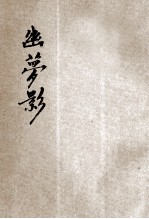 幽夢影